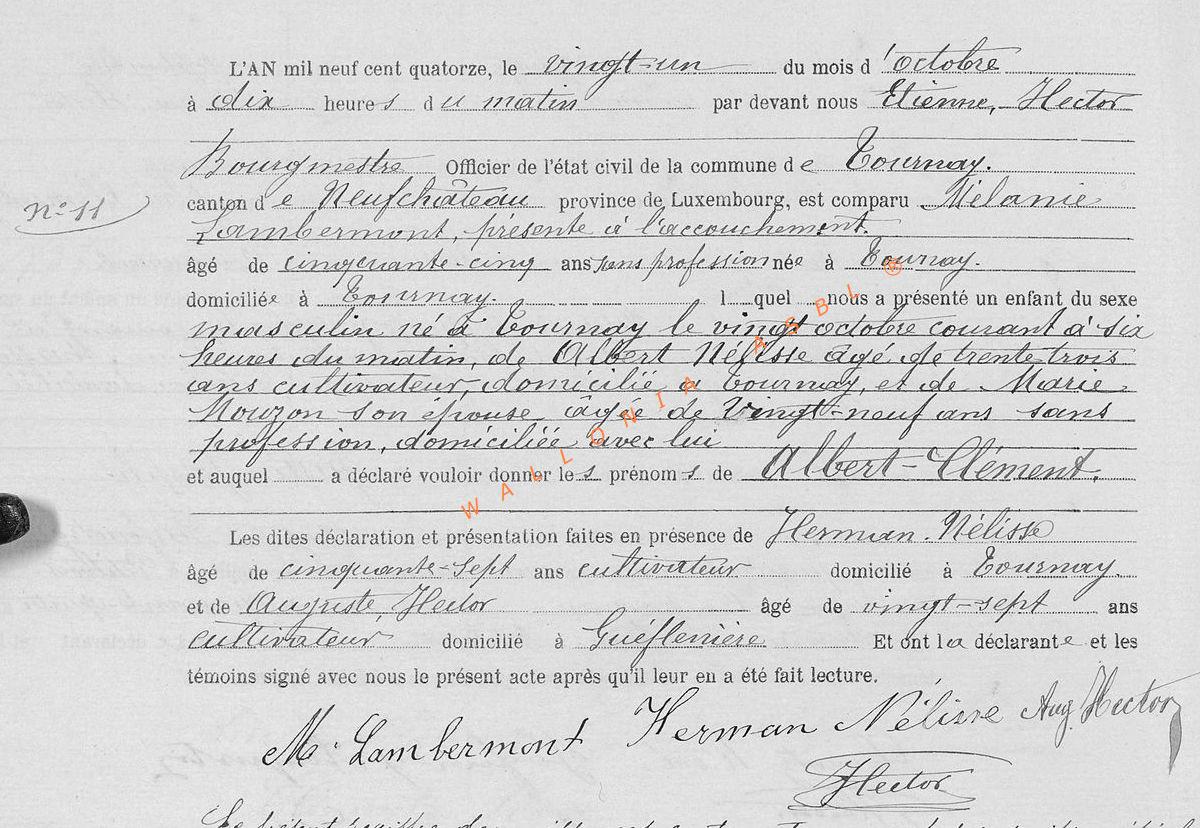 L'AN mil neuf cent quatorze, le vingt-un du mois d'octobre
à dix heures du matin par devant nous Etienne, Hector
Bourgmestre Officier de l'état civil de la commune de Tournay.
N° 11
canton de Neufchâteau province de Luxembourg, est comparu Mélanie
Lambermont, présente à l'accouchement.
âgé de cinquante-cinq ans sans profession née à Tournay.
domiciliée à Tournay. l quel nous a présenté un enfant du sexe
masculin né à Tournay le vingt octobre courant à six
heures du matin, de Albert Nélisse âgé de trente trois
ans cultivateur, domicilié à Tournay, et de Marie
Mouzon son épouse âgée de vingt-neuf ans sans
profession, domiciliée avec lui
et auquel a déclaré vouloir donner les prénoms de Albert-Clément.
WALLONIA ASBL ®
Les dites déclaration et présentation faites en présence de Herman Nélisse
âgé de cinquante-sept ans cultivateur domicilié à Tournay.
et de Auguste, Hector âgé de vingt-sept ans
cultivateur domicilié à Et ont la déclarante et les
témoins signé avec nous le présent acte après qu'il leur en a été fait lecture.
M. Lambermont Herman Nélisse Aug. Hector
Hector
Le présent registre